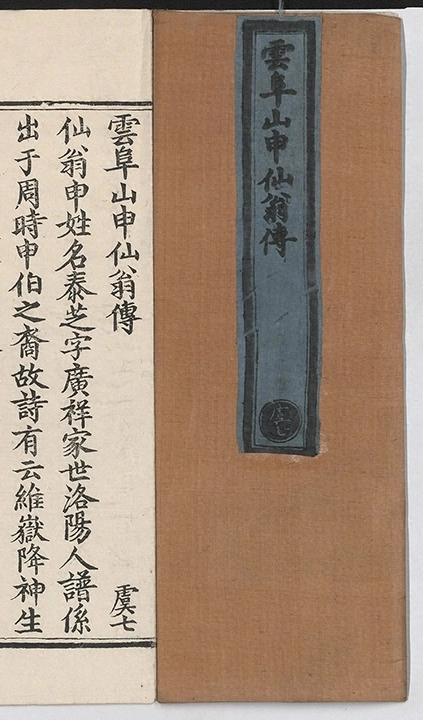 雲阜山申仙翁傳
虞七
雲阜山申仙翁傳
虞七
仙翁申姓名泰芝字廣祥家世洛陽人譜係
出于周時申伯之裔故詩有云維嶽降神生